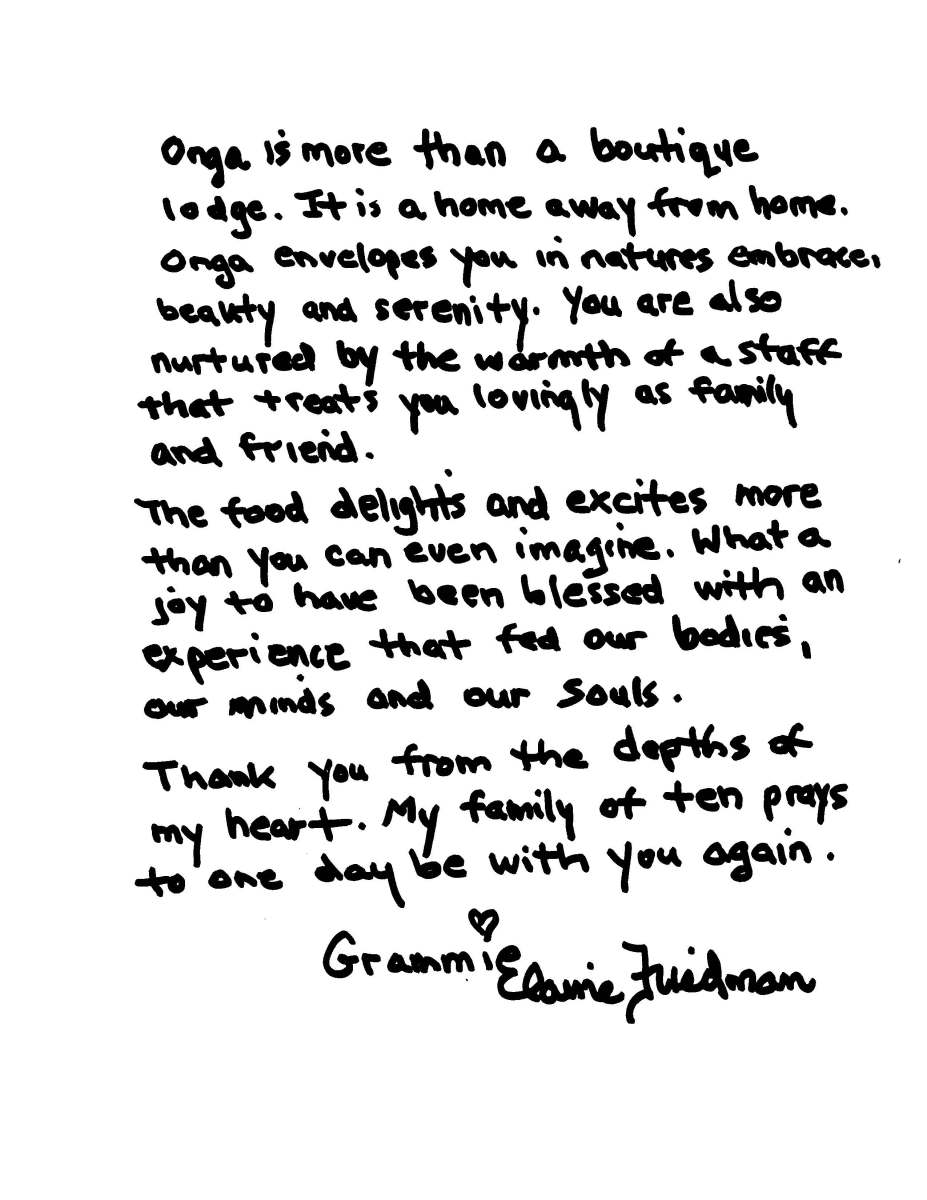 Onga is more than a boutique
lodge. It is a home away from home.
Onga envelopes you in natures embrace,
beauty and serenity. You are also
nurtured by the warmth of a staff
that treats you lovingly as family
and friend.
The food delights and excites more
than you can even imagine. What a
joy to have been blessed with an
experience that fed our bodies,
our minds and our souls.
Thank you from the depths of
my heart. My family of ten prays
to one day be with you again.
Grammie Elaine Friedman